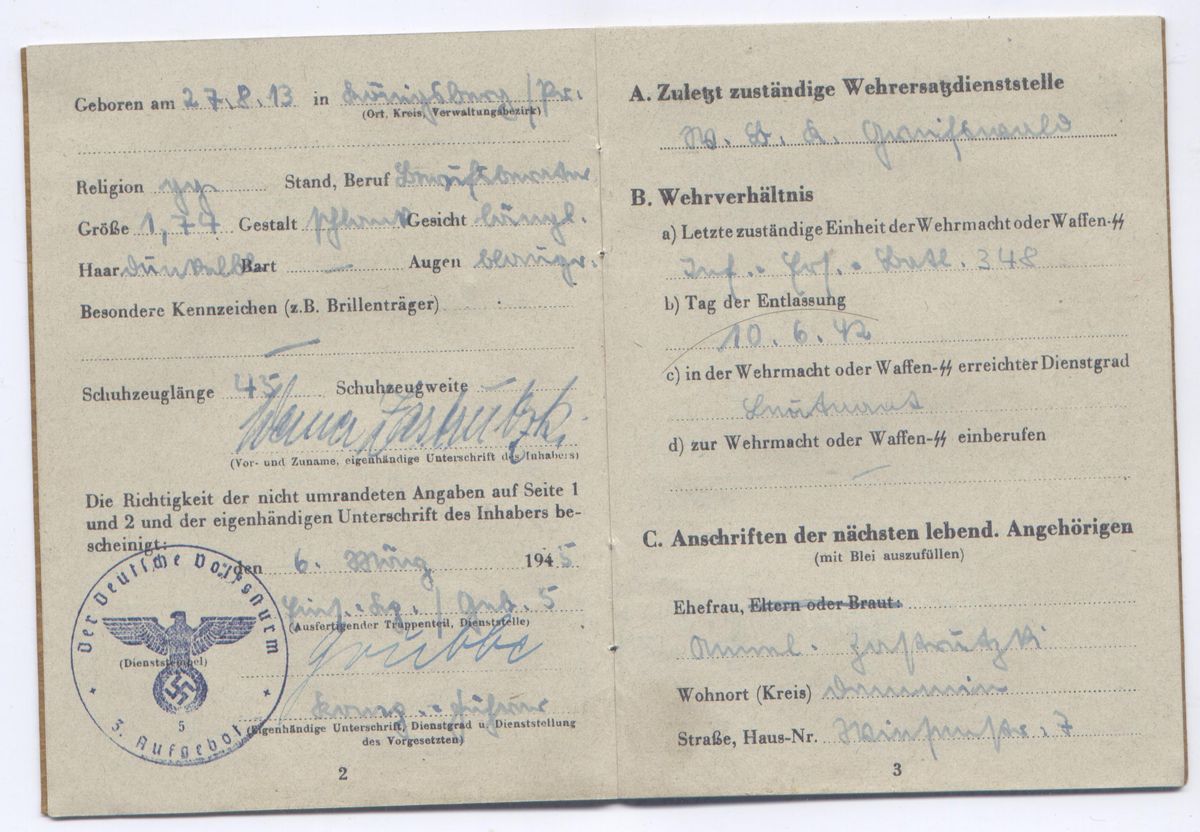 Geboren am 27.8.13 in Königsberg/Pr.
(Ort, Kreis, Verwaltungsbezirk)
Religion Stand, Beruf Berufsberater
Größe 1,74 Gestalt schlank Gesicht längl.
Haar dunkelbl. Bart — Augen blaugr.
Besondere Kennzeichen (z.B. Brillenträger)
—
Schuhzeuglänge 45 Schuhzeugweite
Werner Zastrutzki
(Vor- und Zuname, eigenhändige Unterschrift des Inhabers)
Die Richtigkeit der nicht umrandeten Angaben auf Seite 1
und 2 und der eigenhändigen Unterschrift des Inhabers be-
scheinigt:
den 6. März 1945
(Ausfertigender Truppenteil, Dienststelle)
(Dienststempel)
Der Deutsche Volkssturm
5
3. Aufgebot
Komp.-Führer
(Eigenhändige Unterschrift, Dienstgrad u. Dienststellung
des Vorgesetzten)
2
A. Zuletzt zuständige Wehrersatzdienststelle
W. B. K. Greifswald
B. Wehrverhältnis
a) Letzte zuständige Einheit der Wehrmacht oder Waffen-SS
Inf.-Ers.-Batl. 348
b) Tag der Entlassung
10.6.42
c) in der Wehrmacht oder Waffen-SS erreichter Dienstgrad
Leutnant
d) zur Wehrmacht oder Waffen-SS einberufen
—
C. Anschriften der nächsten lebend. Angehörigen
(mit Blei auszufüllen)
Ehefrau, Eltern oder Braut:
Zastrutzki
Wohnort (Kreis) Demmin
Straße, Haus-Nr. 7
3